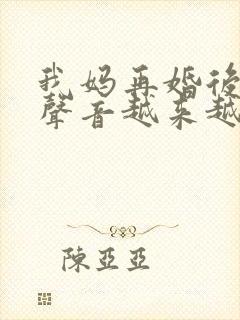 我妈再婚後
聲音越来越
陳亞亞